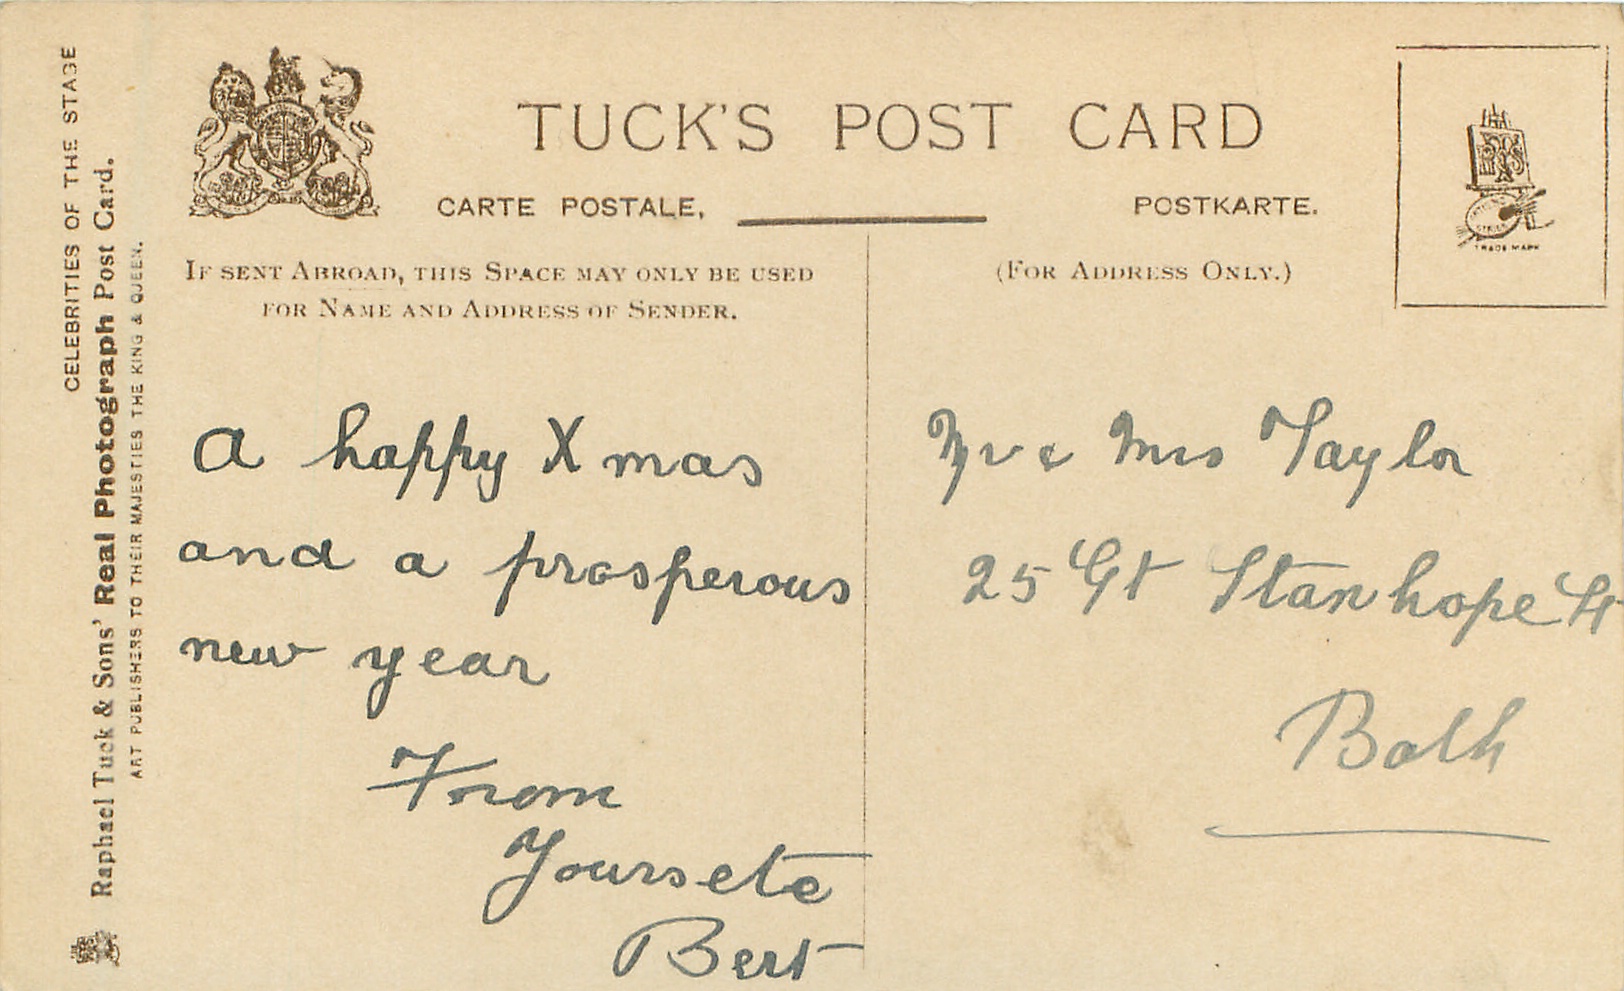 CELEBRITIES OF THE STAGE
Raphael Tuck & Sons' Real Photograph Post Card.
ART PUBLISHERS TO THEIR MAJESTIES THE KING & QUEEN.
TUCK'S POST CARD
CARTE POSTALE, POSTKARTE.
IF SENT ABROAD, THIS SPACE MAY ONLY BE USED
FOR NAME AND ADDRESS OF SENDER.
(FOR ADDRESS ONLY.)
TRADE MARK
A happy Xmas
and a prosperous
new year
From
Yours etc
Bert
Mr & Mrs Taylor
25 Gt Stanhope St
Bath